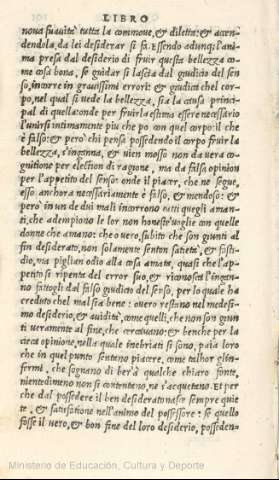 LIBRO
noua suauità tutta la commoue, & diletta: & accen-
dendola, da lei desiderar si fa. Essendo adunq; l'ani-
ma presa dal desiderio di fruir questa bellezza co-
me cosa bona, se guidar si lascia dal giudicio del sen
so, incorre in grauissimi errori: & giudica che'l cor-
po, nel qual si uede la bellezza, sia la causa princi-
pal di quella: onde per fruirla estima essere necessario
l'unirsi intimamente piu che po con quel corpo: il che
è falso: & però chi pensa possedendo il corpo fruir la
bellezza, s'inganna, & uien mosso non da uera co-
gnitione per election di ragione, ma da falsa opinion
per l'appetito del senso: onde il piacer, che ne segue,
esso anchora necessariamente è falso, & mendoso: &
però in un de dui mali incorrono tutti quegli aman-
ti, che adempiono le lor non honeste uoglie con quelle
donne che amano: che o uero, subito che son giunti al
fin desiderato, non solamente senton satietà, & fasti-
dio, ma piglian odio alla cosa amata, quasi che l'ap-
petito si ripenta del error suo, & riconosca l'ingan-
no fattogli dal falso giudicio del senso, per lo quale ha
creduto che'l mal sia bene: o uero restano nel medesi-
mo desiderio, & auidità, come quelli, che non son giun
ti ueramente al fine, che cercauano: & benche per la
cieca opinione, nella quale inebriati si sono, paia loro
che in quel punto sentano piacere, come talhor gl'in-
fermi, che sognano di ber à qualche chiaro fonte,
nientedimeno non si contentano, ne s'acquetano. Et per
che dal possedere il ben desiderato nasce sempre quie
te, & satisfatione nell'animo del possessore: se quello
fosse il uero, & bon fine del loro desiderio, posseden-
Ministerio de Educación, Cultura y Deporte